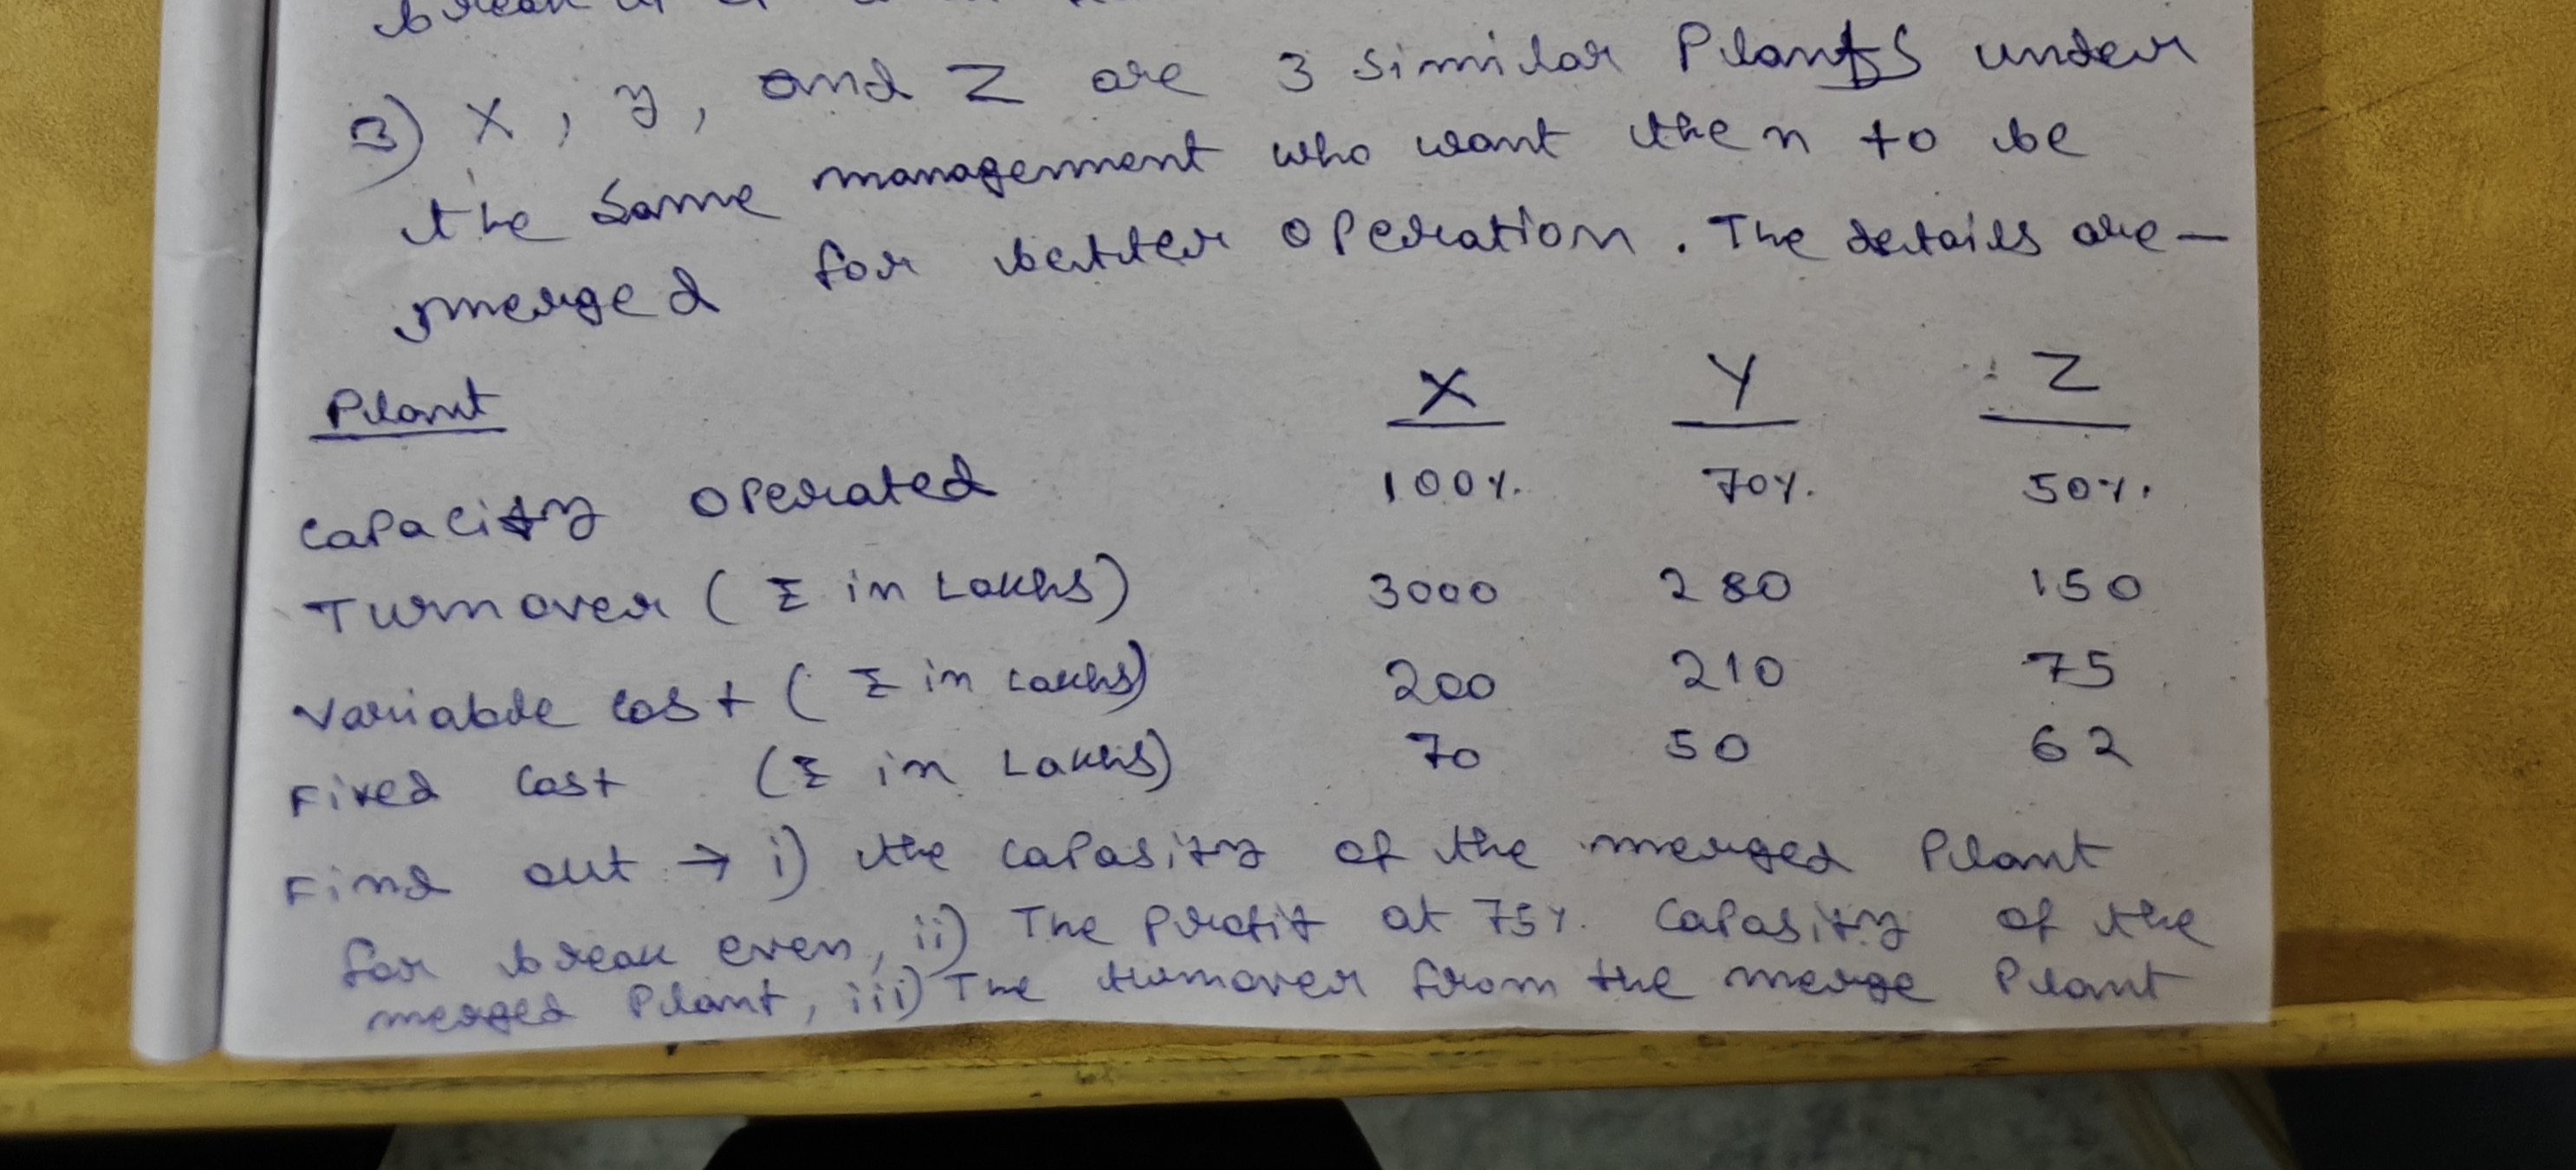 3) X, y, and Z are 3 similar Plants under
the same management who want then to be
merged for better operation. The details are —
Plant X Y Z
Capacity operated 100% 70% 50%
Turnover (₹ in Lakhs) 3000 280 150
Variable Cost (₹ in Lakhs) 200 210 75
Fixed Cost (₹ in Lakhs) 70 50 62
Find out → i) the capasity of the merged Plant
for break even, ii) The Profit at 75% Capasity of the
merged Plant, iii) The turnover from the merge Plant